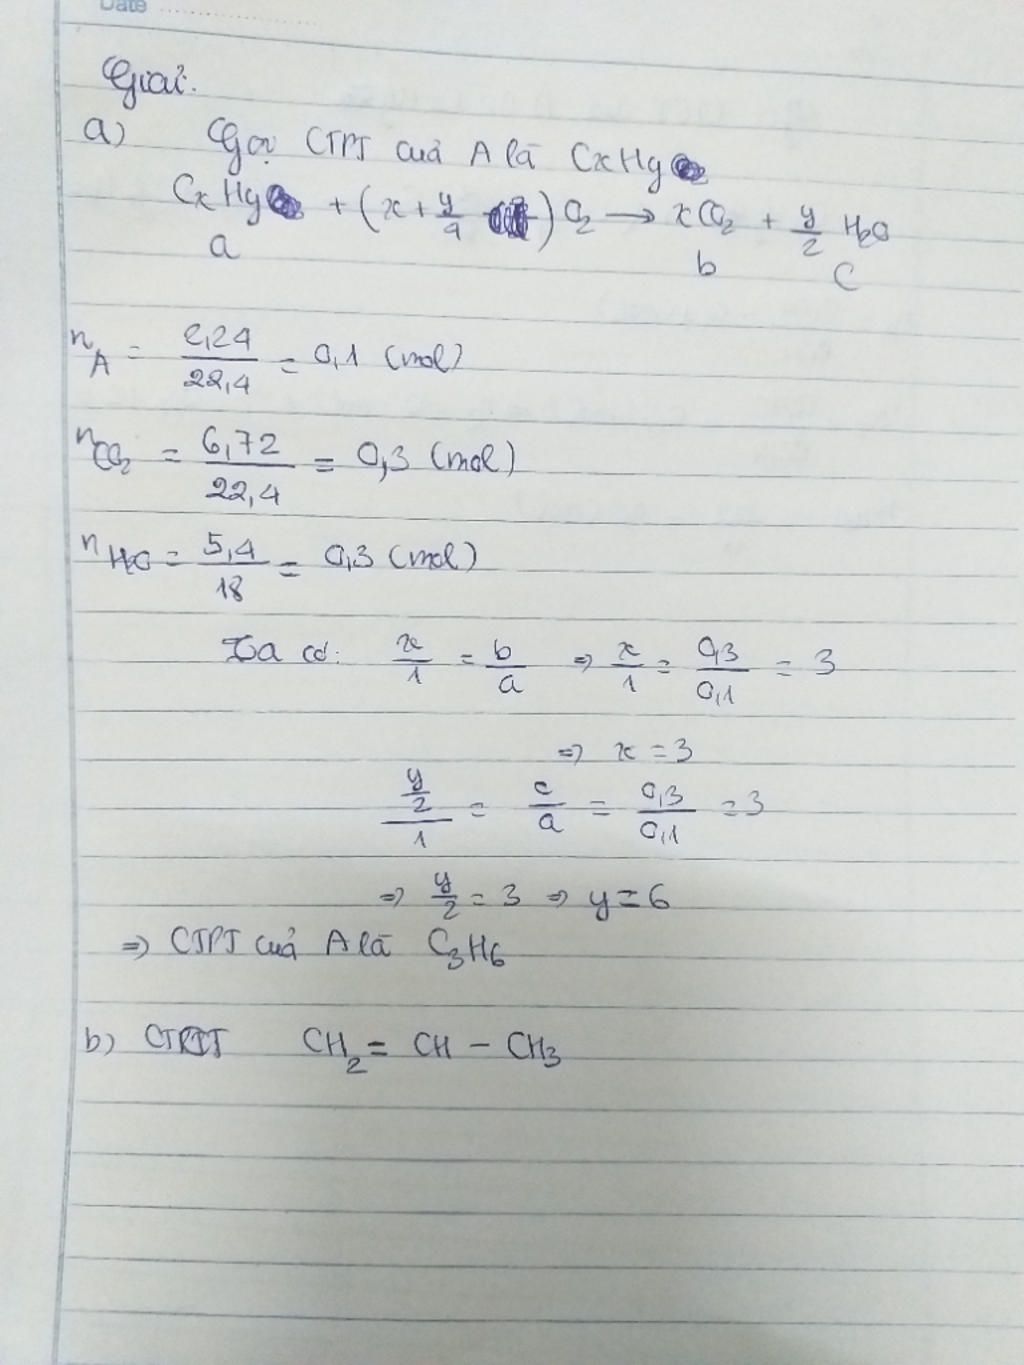 Date
Giải:
a) Gọi CTPT của A là CxHy
CxHy + (x + y/4) O2 → xCO2 + y/2 H2O
a b c
nA = 2,24/22,4 = 0,1 (mol)
nCO2 = 6,72/22,4 = 0,3 (mol)
nH2O = 5,4/18 = 0,3 (mol)
Ta có: x/1 = b/a => x/1 = 0,3/0,1 = 3
=> x = 3
y/2/1 = c/a = 0,3/0,1 = 3
=> y/2 = 3 => y = 6
=> CTPT của A là C3H6
b) CTPT CH2 = CH - CH3